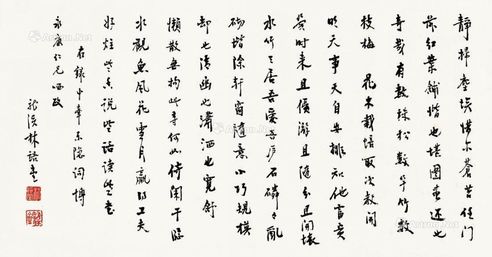 靜掃塵埃惜尔蒼苔任門
前紅葉鋪堦也堪圖畫還也
奇哉有數株松數竿竹數
枝梅 花木栽培取次教開
明天事天自安排知他富貴
幾時来且優游且隨分且開懷
水竹之居吾愛吾庐石磷磷亂
砌堦除軒窗隨意小巧規模
却也清幽也瀟洒也寬舒
懶散無拘此等何如倚闌干臨
水觀魚風花雪月贏得工夫
好炷些香說些話讀些書
右錄中峯樂隱詞博
永康仁兄哂政
龍溪林語堂